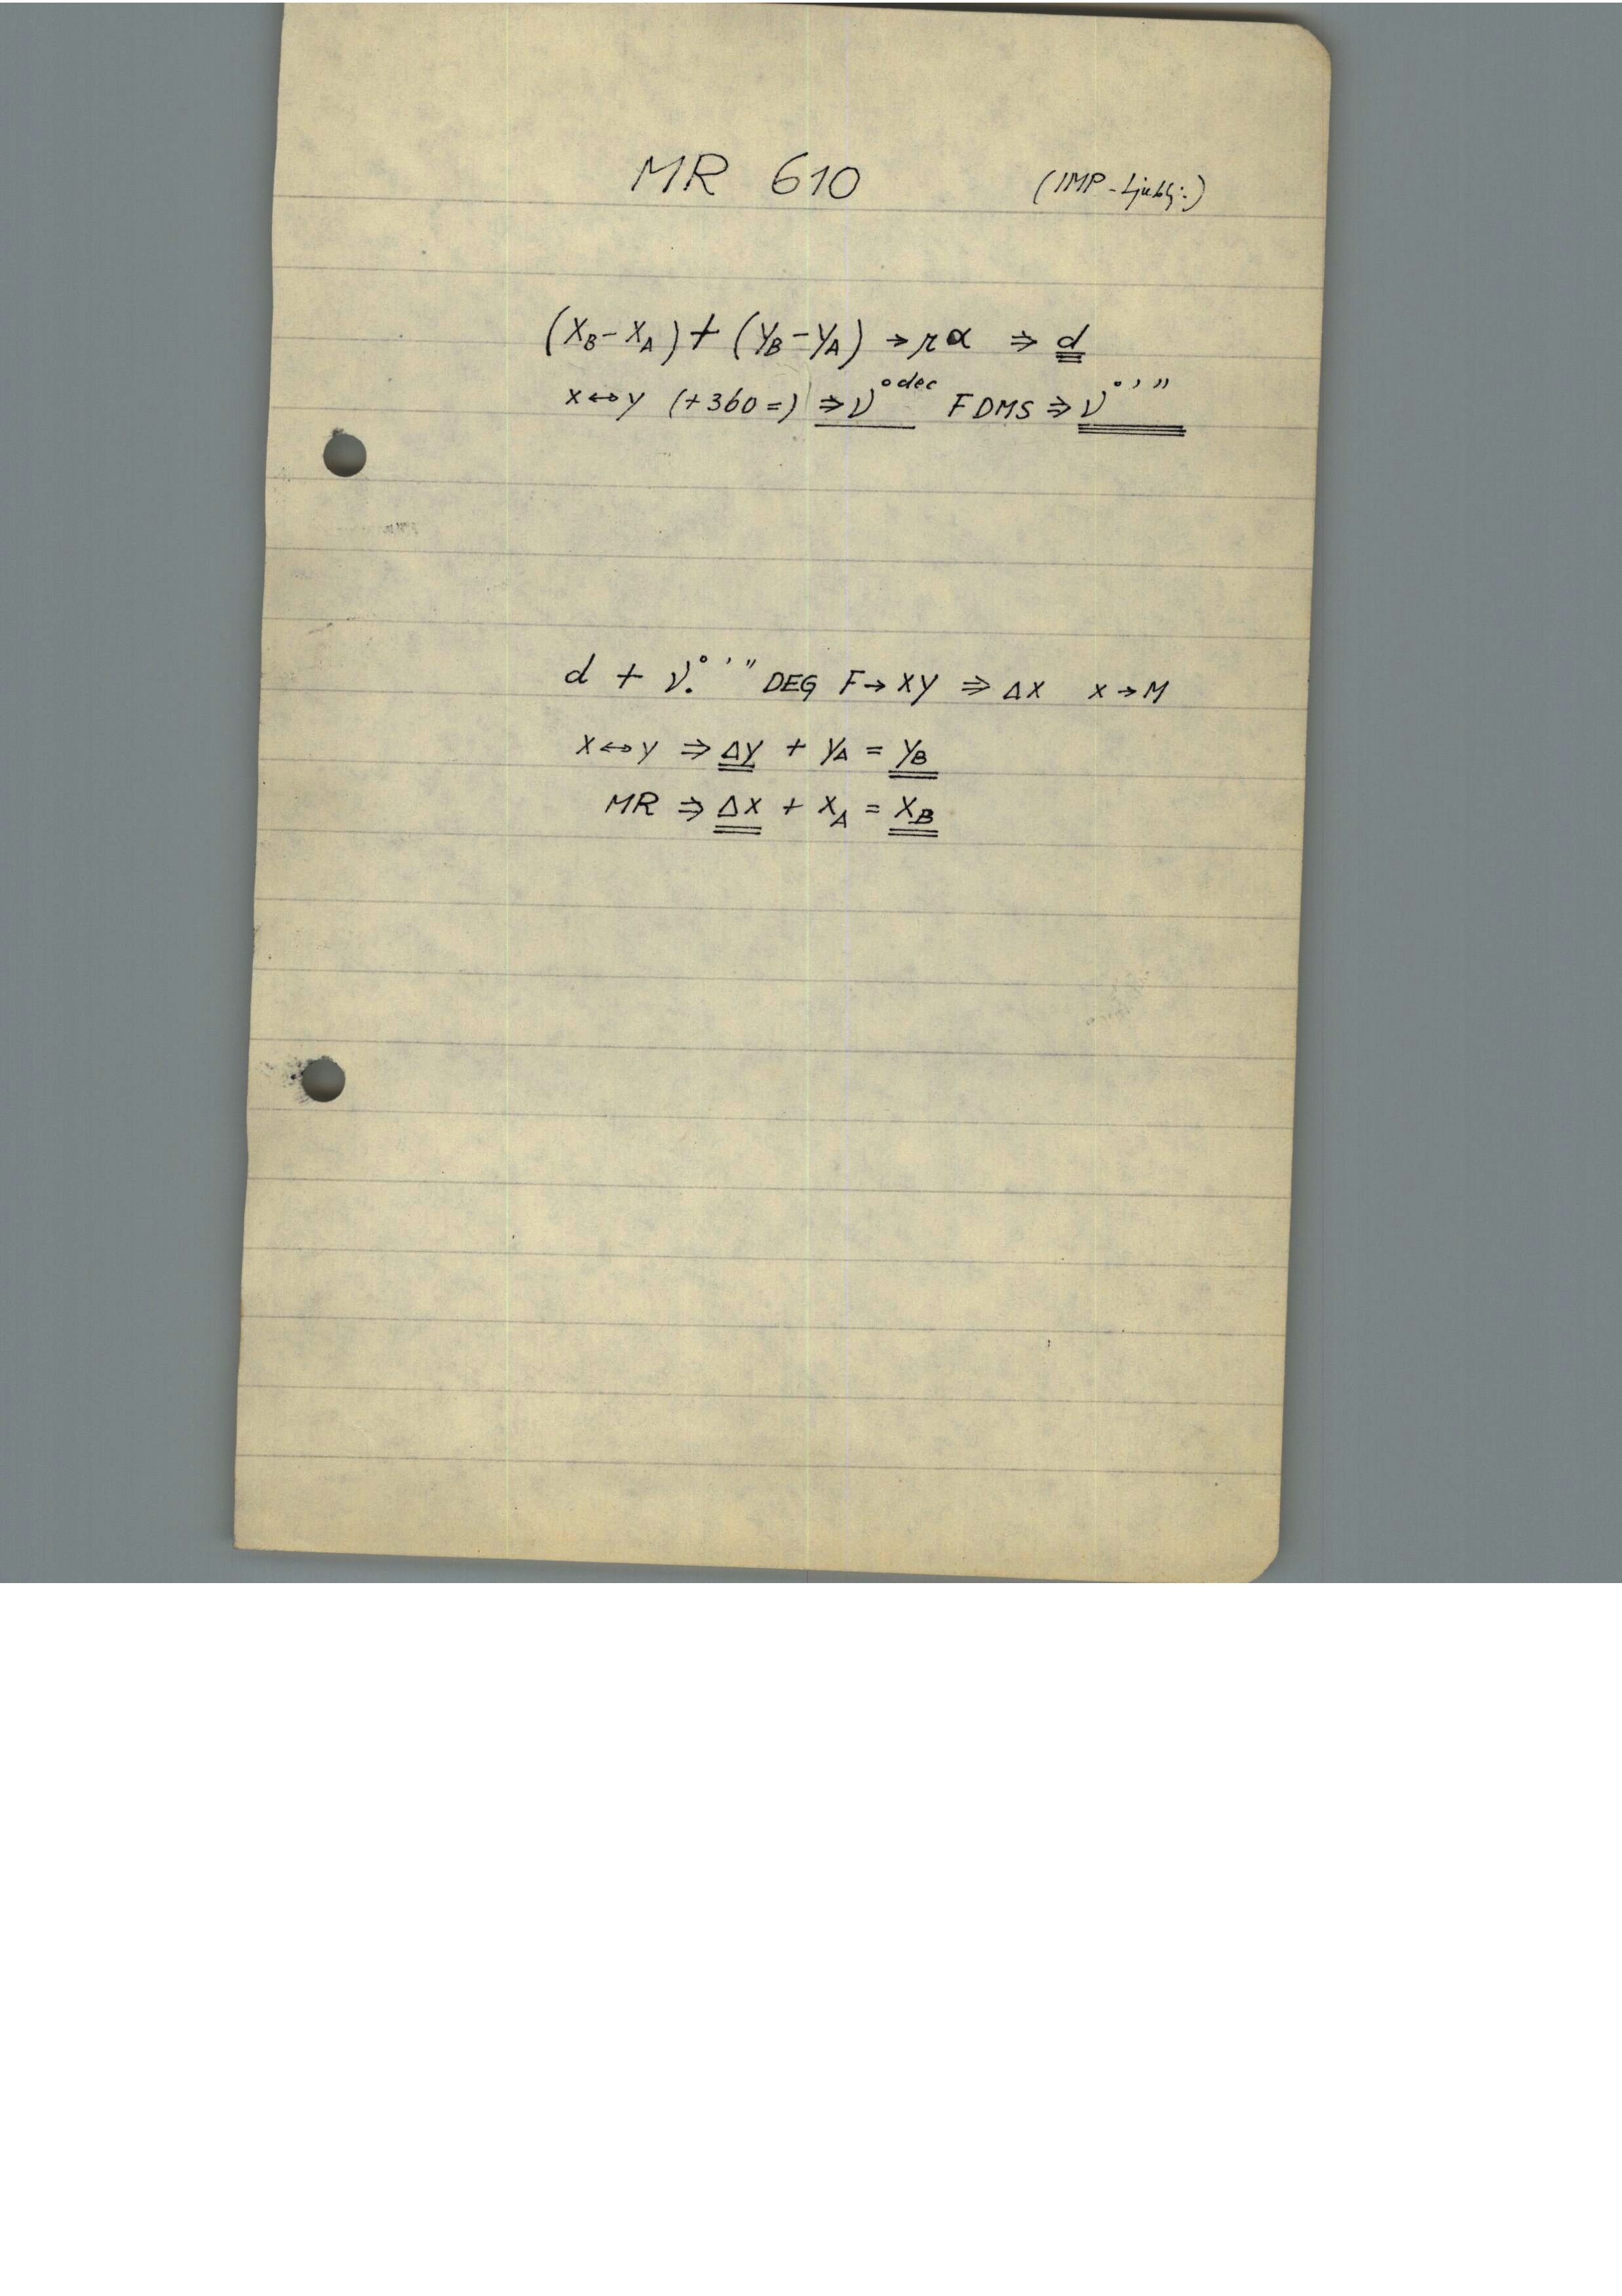 MR 610 (IMP-Ljublj.)
(XB-XA)+(YB-YA) →rα ⇒ d
x↔y (+360=) ⇒ν°dec F DMS ⇒ ν°'"
d + ν.°'" DEG F→XY ⇒ ΔX x→M
x↔y ⇒ Δy + YA = YB
MR ⇒ ΔX + XA = XB